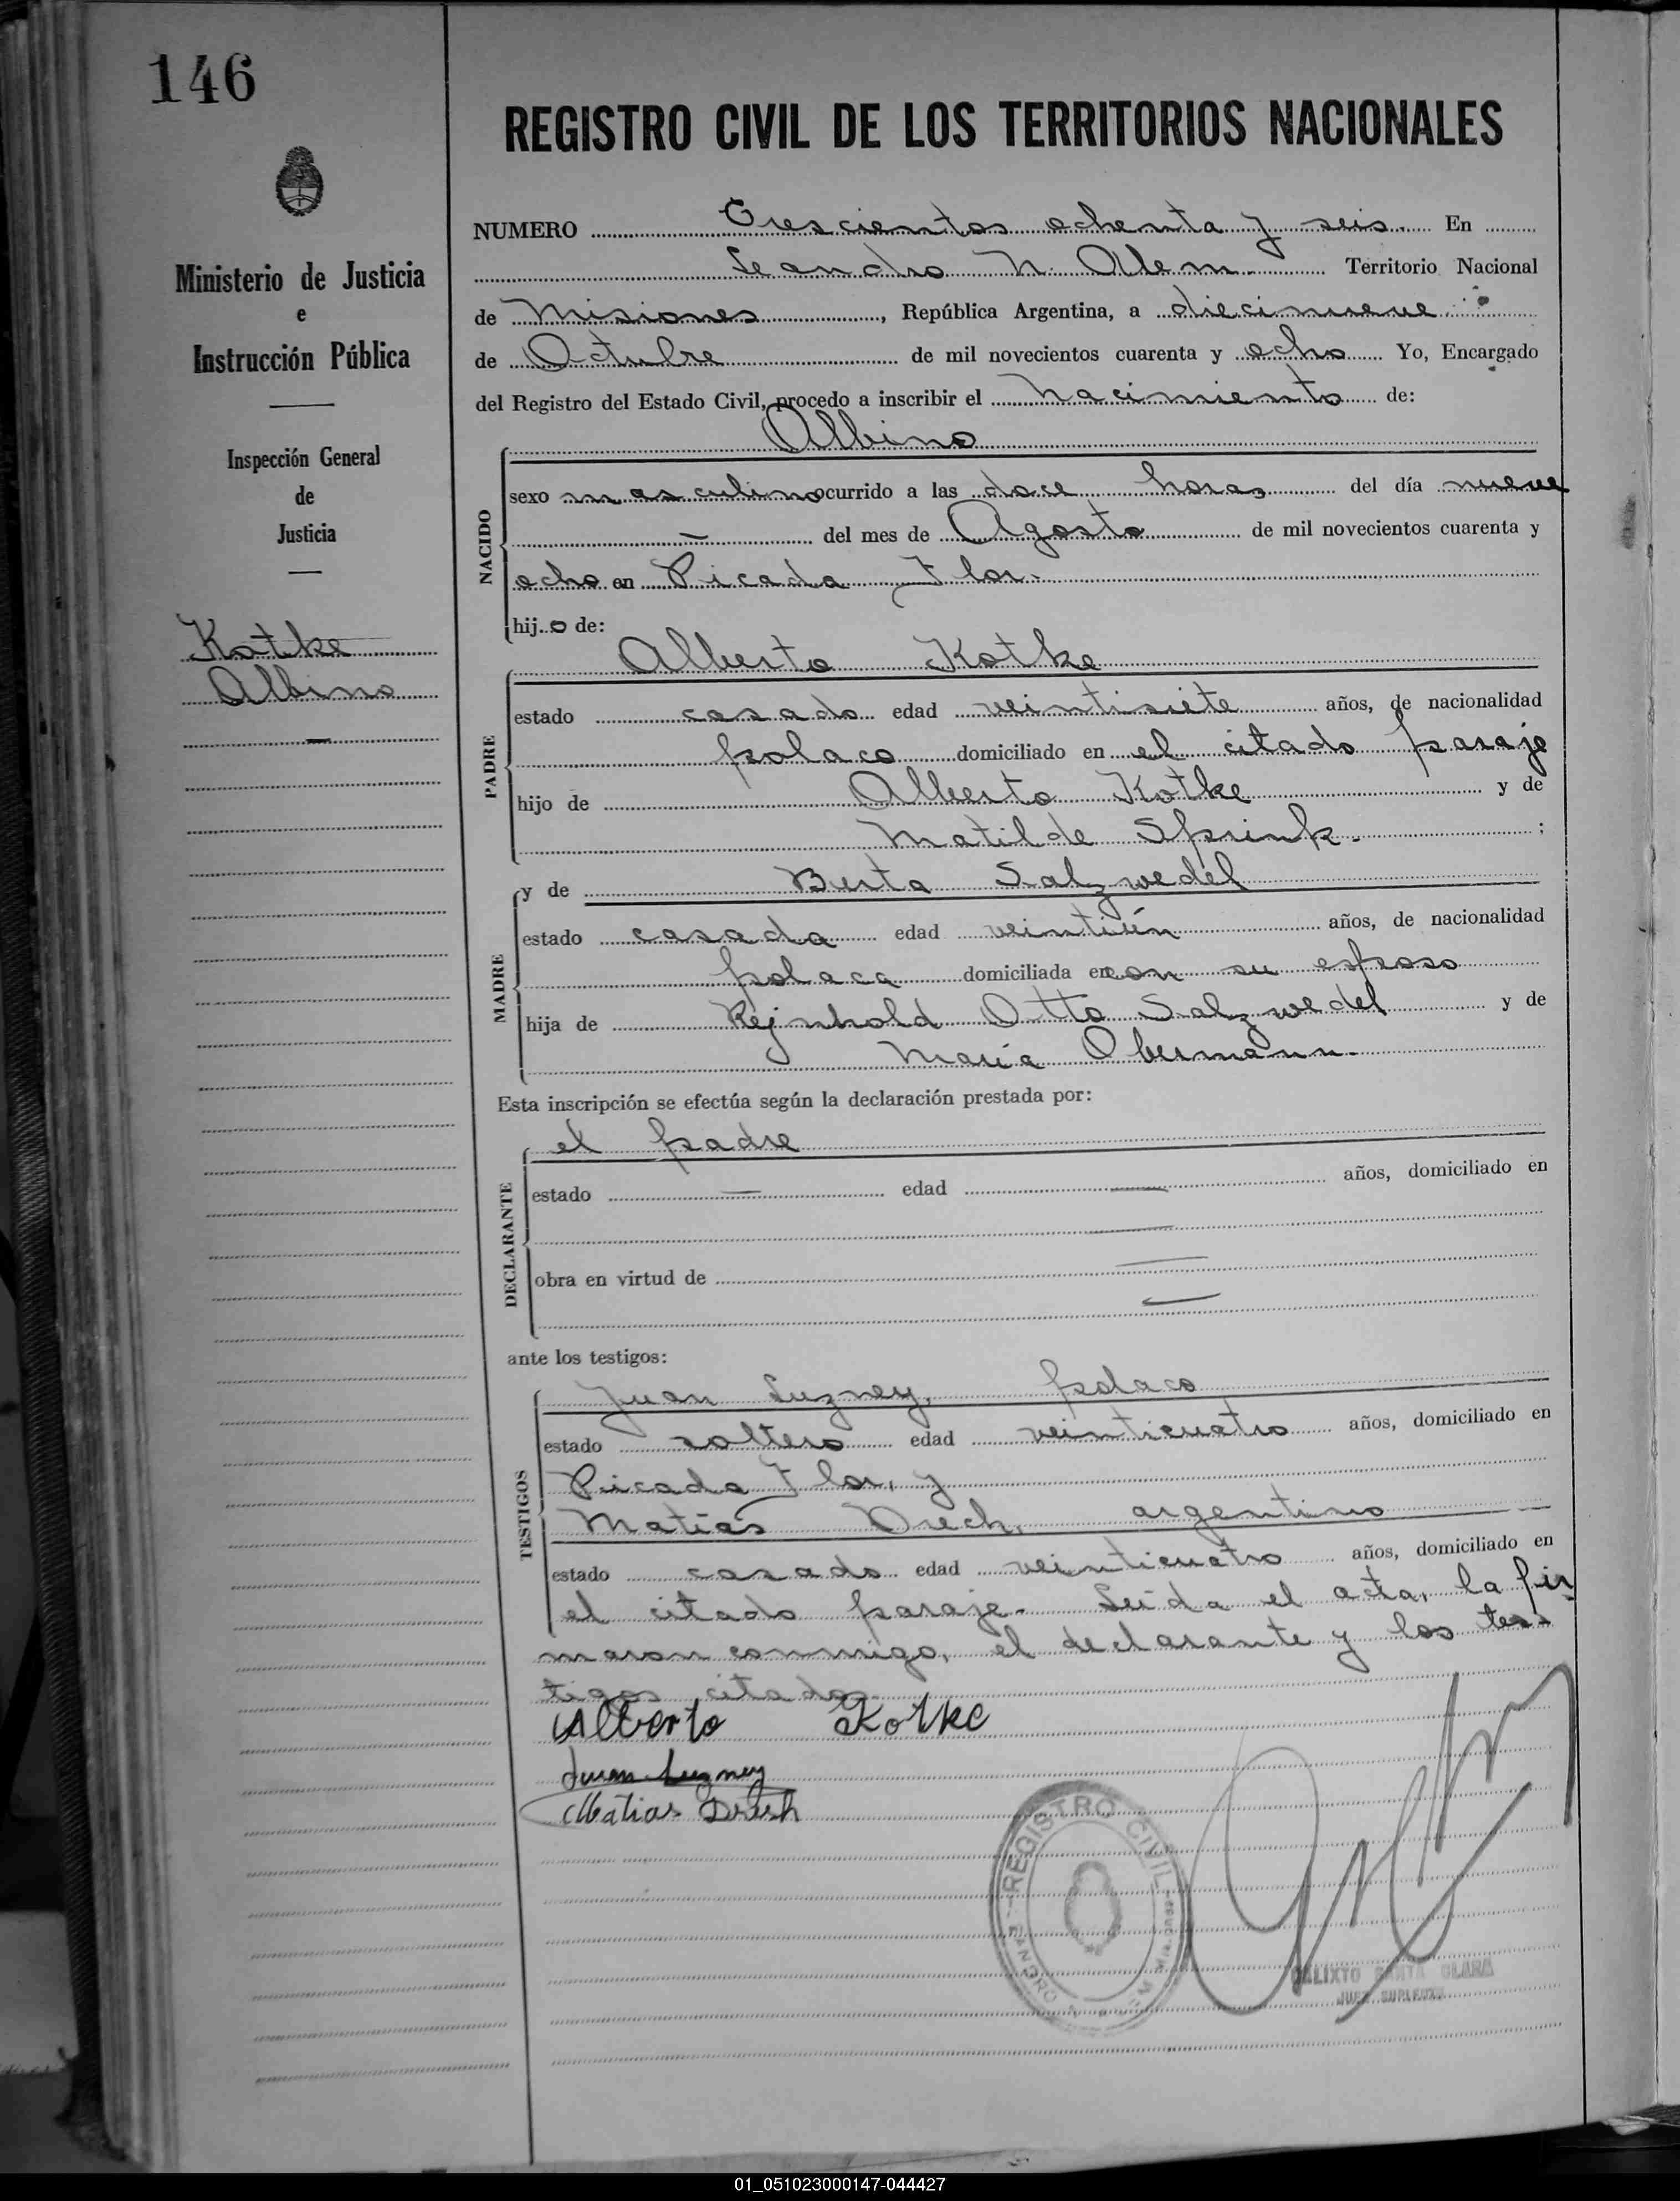 146
REGISTRO CIVIL DE LOS TERRITORIOS NACIONALES
Ministerio de Justicia
e
Instrucción Pública
Inspección General
de
Justicia
Kotke
Albino
NUMERO Trescientos ochenta y seis. En
Leandro N. Alem. Territorio Nacional
de Misiones, República Argentina, a diecinueve
de Octubre de mil novecientos cuarenta y ocho Yo, Encargado
del Registro del Estado Civil, procedo a inscribir el nacimiento de:
Albino
NACIDO
sexo masculino ocurrido a las doce horas del día nueve
— del mes de Agosto de mil novecientos cuarenta y
ocho en Picada Flor.
hijo de:
Alberto Kotke
PADRE
estado casado edad veintisiete años, de nacionalidad
polaco domiciliado en el citado paraje
hijo de Alberto Kotke y de
Matilde Sprink. ;
y de Berta Salzwedel
MADRE
estado casada edad veintiún años, de nacionalidad
polaca domiciliada en con su esposo
hija de Rejnhold Otto Salzwedel y de
María Obermann.
Esta inscripción se efectúa según la declaración prestada por:
el padre
DECLARANTE
estado — edad — años, domiciliado en
obra en virtud de —
ante los testigos:
Juan Luzney, polaco
TESTIGOS
estado soltero edad veinticuatro años, domiciliado en
Picada Flor, y
Matías Drech, argentino
estado casado edad veinticuatro años, domiciliado en
el citado paraje. Leída el acta, la fir
maron conmigo, el declarante y los tes-
tigos citados.
Alberto Kotke
Juan Luzney
Matias Dresh
REGISTRO CIVIL
CALIXTO SANTA CLARA
JUEZ SUPLENTE
01_051023000147-044427